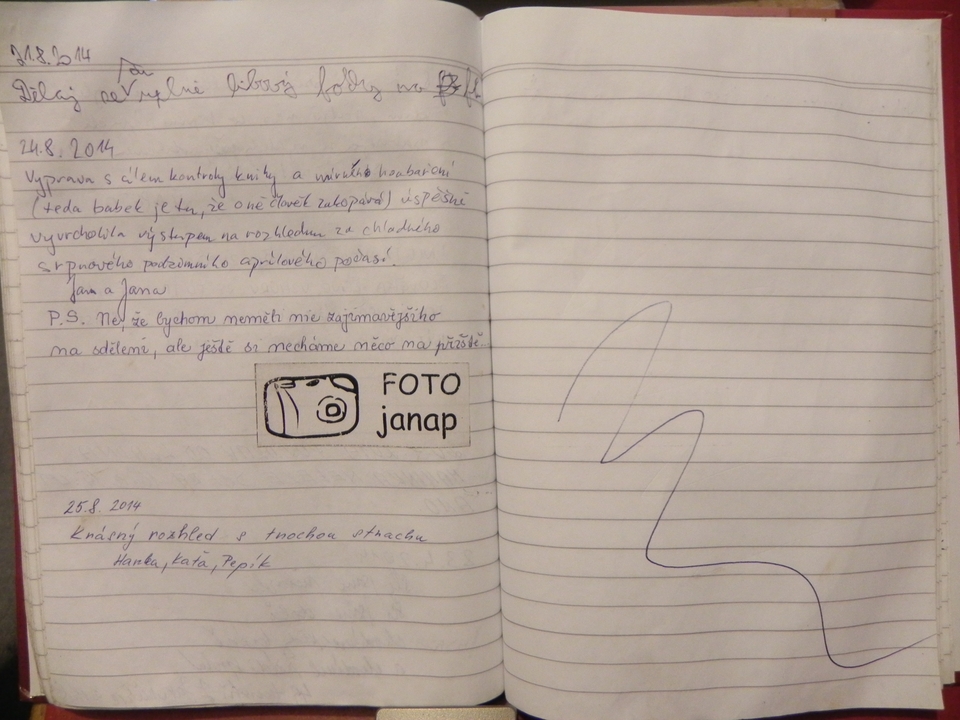 21.8.2014
Dělaj úplně libový fotky na
24.8.2014
Výprava s cílem kontroly knihy a houbaření
(teda babek je tu, že oně člověk zakopává) úspěšně
vyvrcholila výstupem na rozhlednu za chladného
srpnového podzimního aprílového počasí.
Jana a Jana
P.S. Ne, že bychom neměli nic zajímavějšího
na sdělení, ale ještě si necháme něco na příště.
FOTO
janap
25.8. 2014
Krásný rozhled s trochou strachu
Hanka, Káťa, Pepík